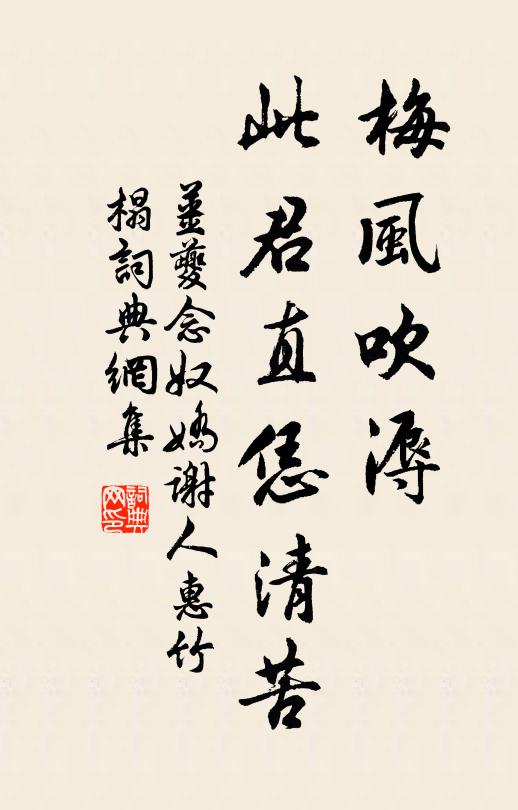 梅風吹溽
此君直恁清苦
姜夔念奴嬌謝人惠竹
榻詞典網集
詞典
网印